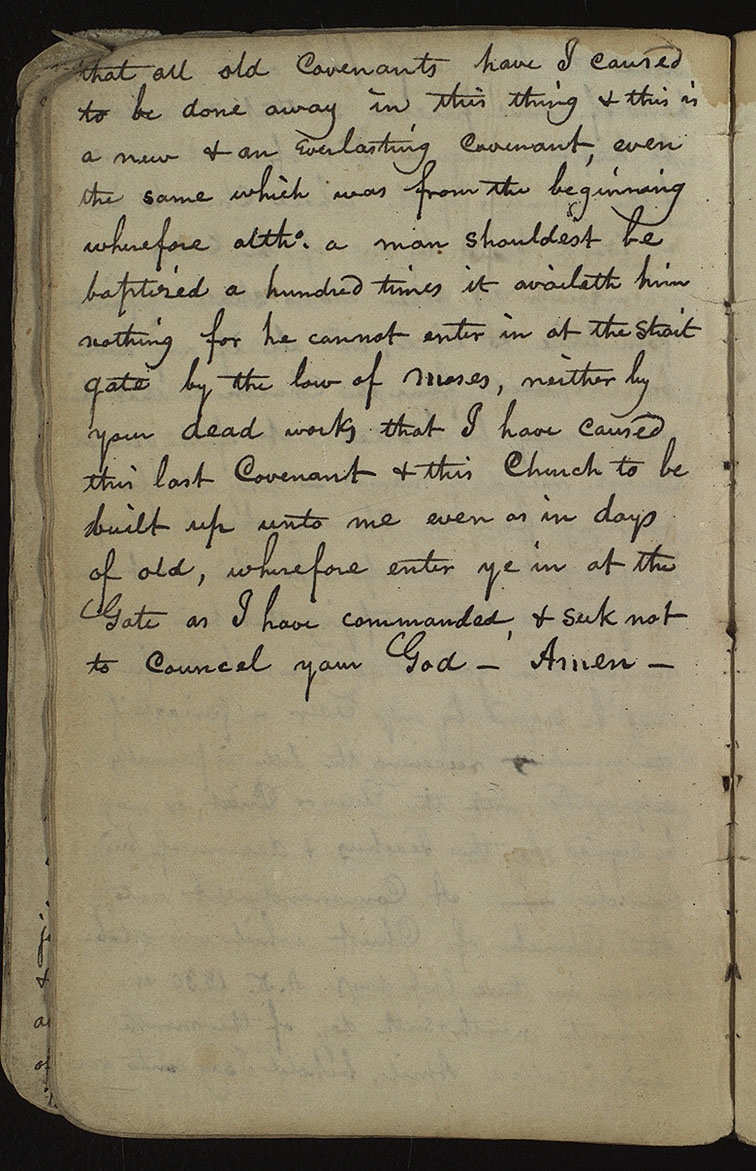 that all old Covenants have I caused
to be done away in this thing & this is
a new & an Everlasting Covenant, even
the same which was from the beginning
wherefore altho. a man shouldest be
baptized a hundred times it availeth him
nothing for he cannot enter in at the strait
gate by the law of Moses, neither by
your dead works that I have caused
this last Covenant & this Church to be
built up unto me even as in days
of old, wherefore enter ye in at the
Gate as I have commanded, & seek not
to Councel your God — Amen —